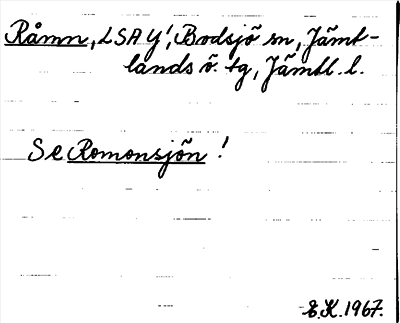 Råmn, LSA Y!, Bodsjö sn, Jämt-
lands ö. tg, Jämtl. l.
Se Romonsjön!
E.K. 1967.